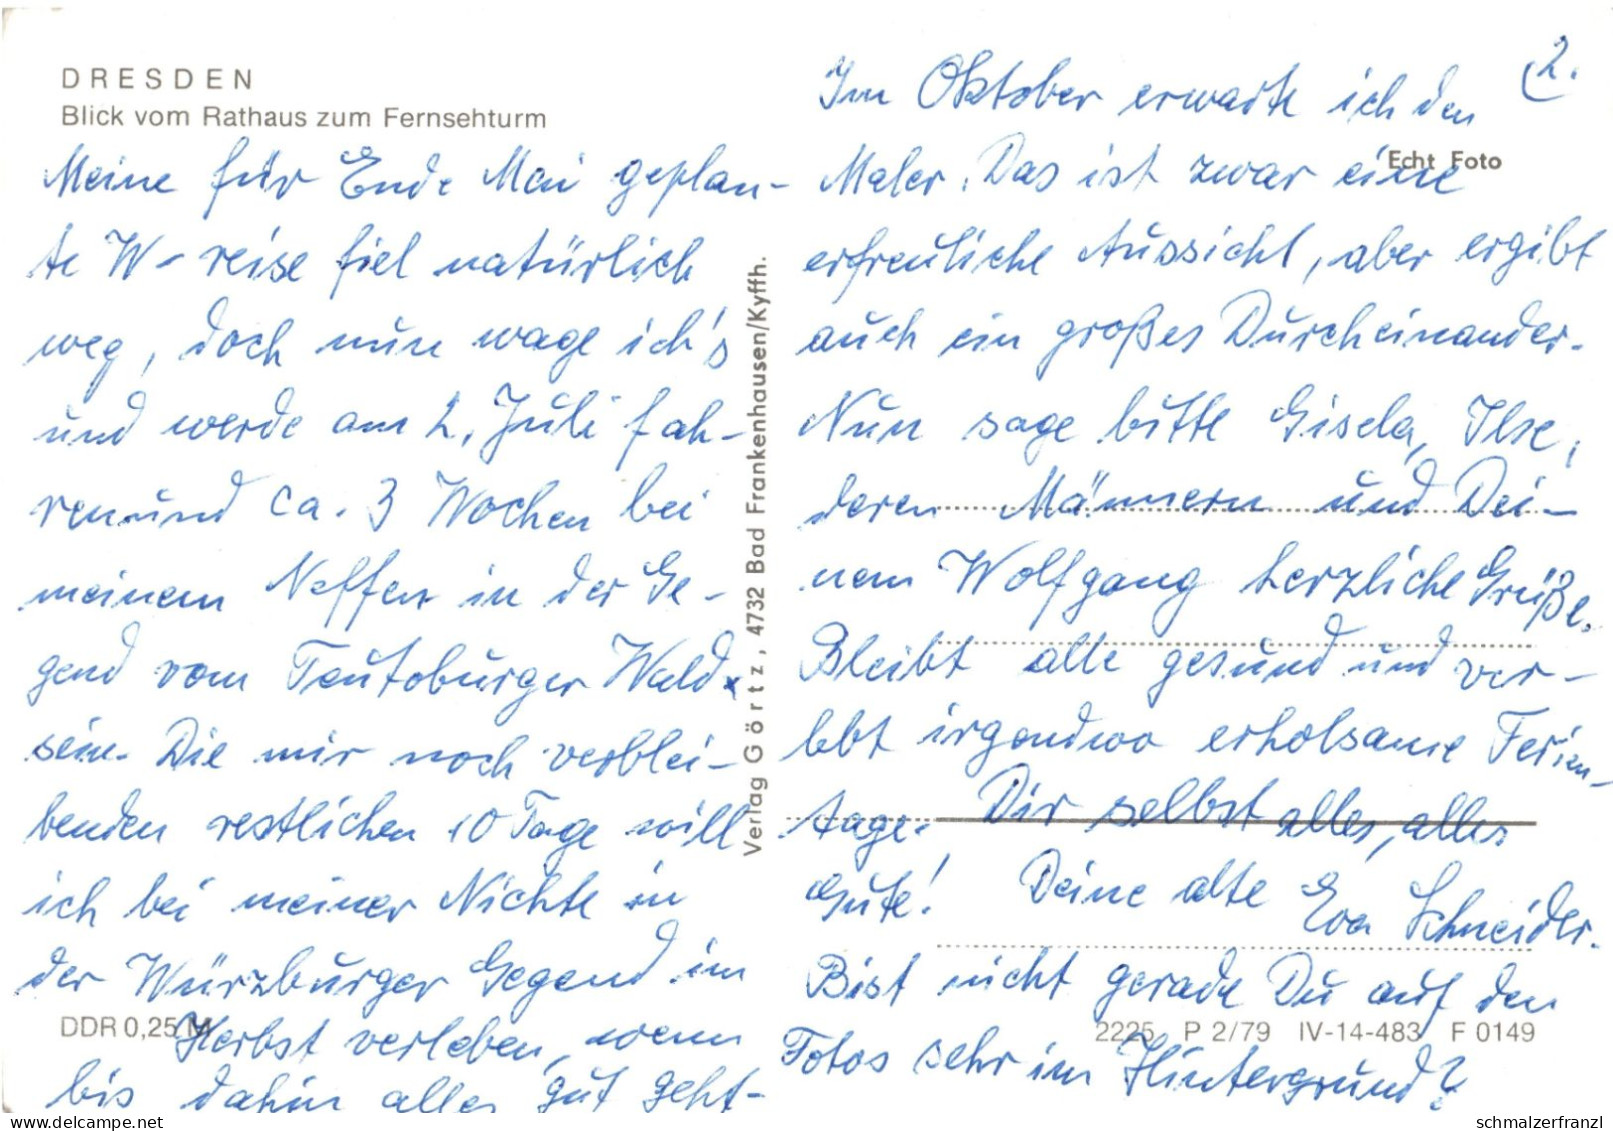 DRESDEN
Blick vom Rathaus zum Fernsehturm
Meine für Ende Mai geplan-
te W-reise fiel natürlich
weg, doch nun wage ich's
und werde am 2. Juli fah-
ren und ca. 3 Wochen bei
meinem Neffen in der Ge-
gend vom Teutoburger Wald
sein. Die mir noch verblei-
benden restlichen 10 Tage will
ich bei meiner Nichte in
der Würzburger Gegend im
Herbst verleben, wenn
bis dahin alles gut geht-
DDR 0,25 M
Verlag Görtz, 4732 Bad Frankenhausen/Kyffh.
2.
Im Oktober erwarte ich den
Echt Foto
Maler. Das ist zwar eine
erfreuliche Aussicht, aber ergibt
auch ein großes Durcheinander.
Nun sage bitte Gisela, Ilse,
deren Männern und Dei-
nem Wolfgang herzliche Grüße.
Bleibt alle gesund und ver-
lebt irgendwo erholsame Ferien-
tage. Dir selbst alles, alles
Gute! Deine alte Eva Schneider.
Bist nicht gerade Du auf den
Fotos sehr im Hintergrund?
2225 P 2/79 IV-14-483 F 0149
schmalzerfranzl